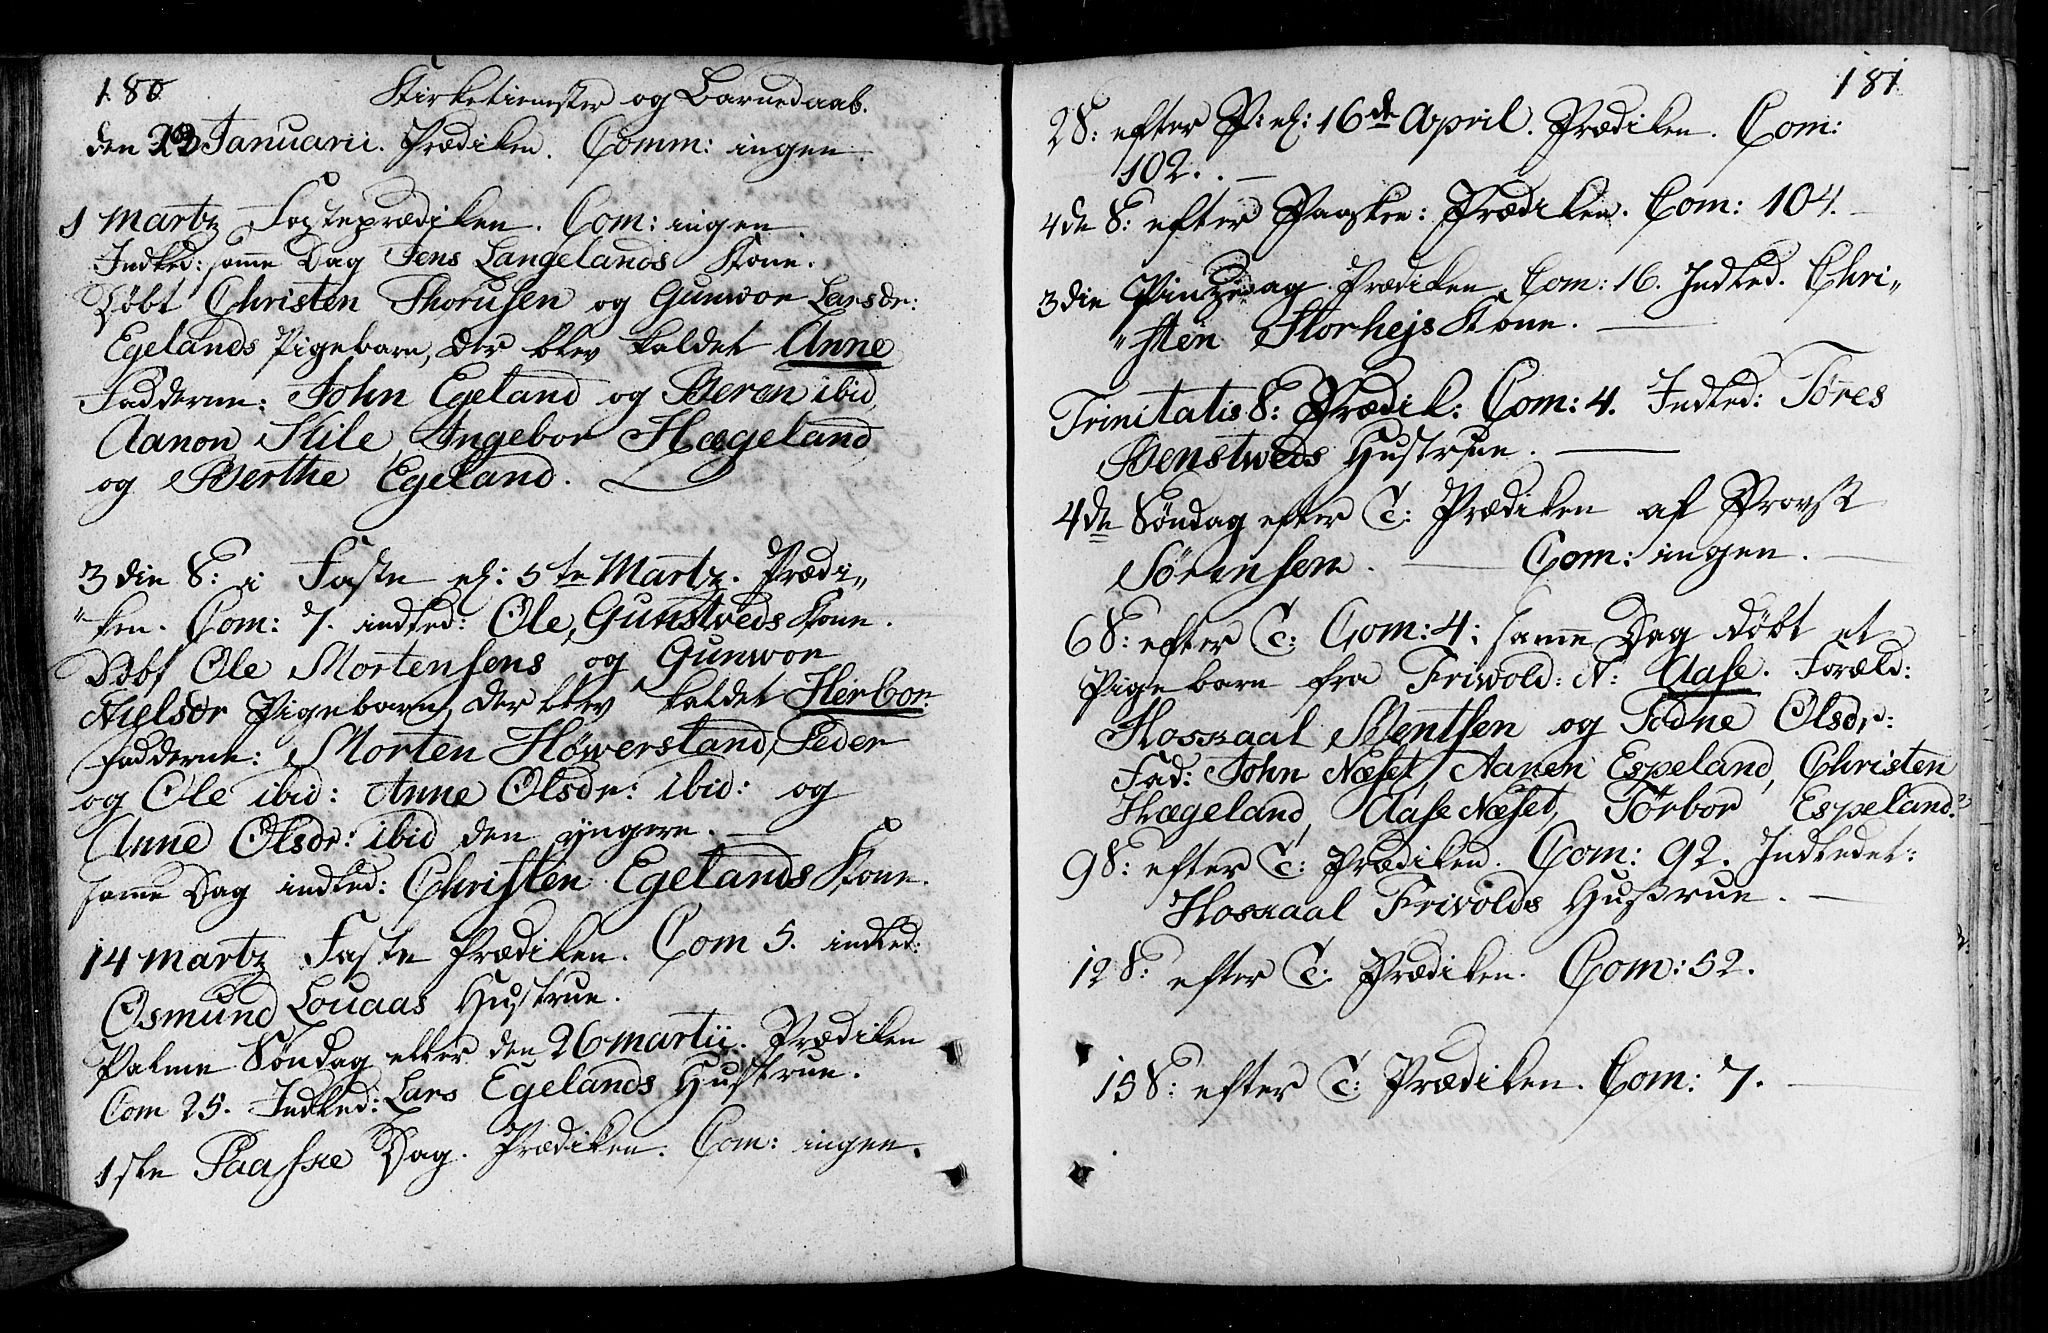 180
Kirketienester og Barnedaab.
den 23 Januarii. Prædiken. Comm: ingen.
1 Martz Fasteprædiken. Com: ingen.
Indled: samme Dag Jens Langelands Kone.
Døbt Christen Thorusen og Gunwor Larsdr:
Egelands Pigebarn, der blev kaldet Anne
Fadderne: John Egeland og Beren ibid,
Aanon Kile, Ingebor Hægeland
og Berthe Egeland.
3die S: i Faste el: 5te Martz. Prædi„
„ken. Com: 7. indled: Ole Gunstveds Kone.
Døbt Ole Mortensens og Gunwor
Nielsdr Pigebarn, der blev kaldet Herbor.
Fadderne: Morten Høwerstand, Peder
og Ole ibid: Anne Olsdr: ibid: og
Anne Olsdr: ibid den yngere.
samme Dag indled: Christen Egelands Kone.
14 Martz Faste Prædiken. Com 5. indled:
Osmund Louaas Hustrue.
Palme Søndag eller den 26 Martii. Prædiken
Com 25. Indled: Lars Egelands Hustrue.
1ste Paaske Dag. Prædiken. Com: ingen.
181
2S: efter P: el: 16de April. Prædiken. Com:
102.
4de S: efter Paaske: Prædiken. Com: 104.
3die Pinzedag Prædiken. Com: 16. Indled. Chri„
„sten Storhejs Kone.
Trinitatis S: Prædik: Com: 4. Indled: Tores
Benstweds Hustrue.
4de Søndag efter T: Prædiken af Provst
Sørensen. Com: ingen.
6S: efter T: Com: 4: samme Dag døbt et
Pigebarn fra Friwold: N: Aase. Foræld:
Hoskaal Bentsen og Todne Olsdr:
Fad: John Næset, Aanen Espeland, Christen
Hægeland, Aase Næset, Torbor Espeland.
9S: efter T: Prædiken. Com: 92. Indledet:
Hoskaal Frivolds Hustrue.
12S: efter T: Prædiken. Com: 52.
15S: efter T: Prædiken. Com: 7.